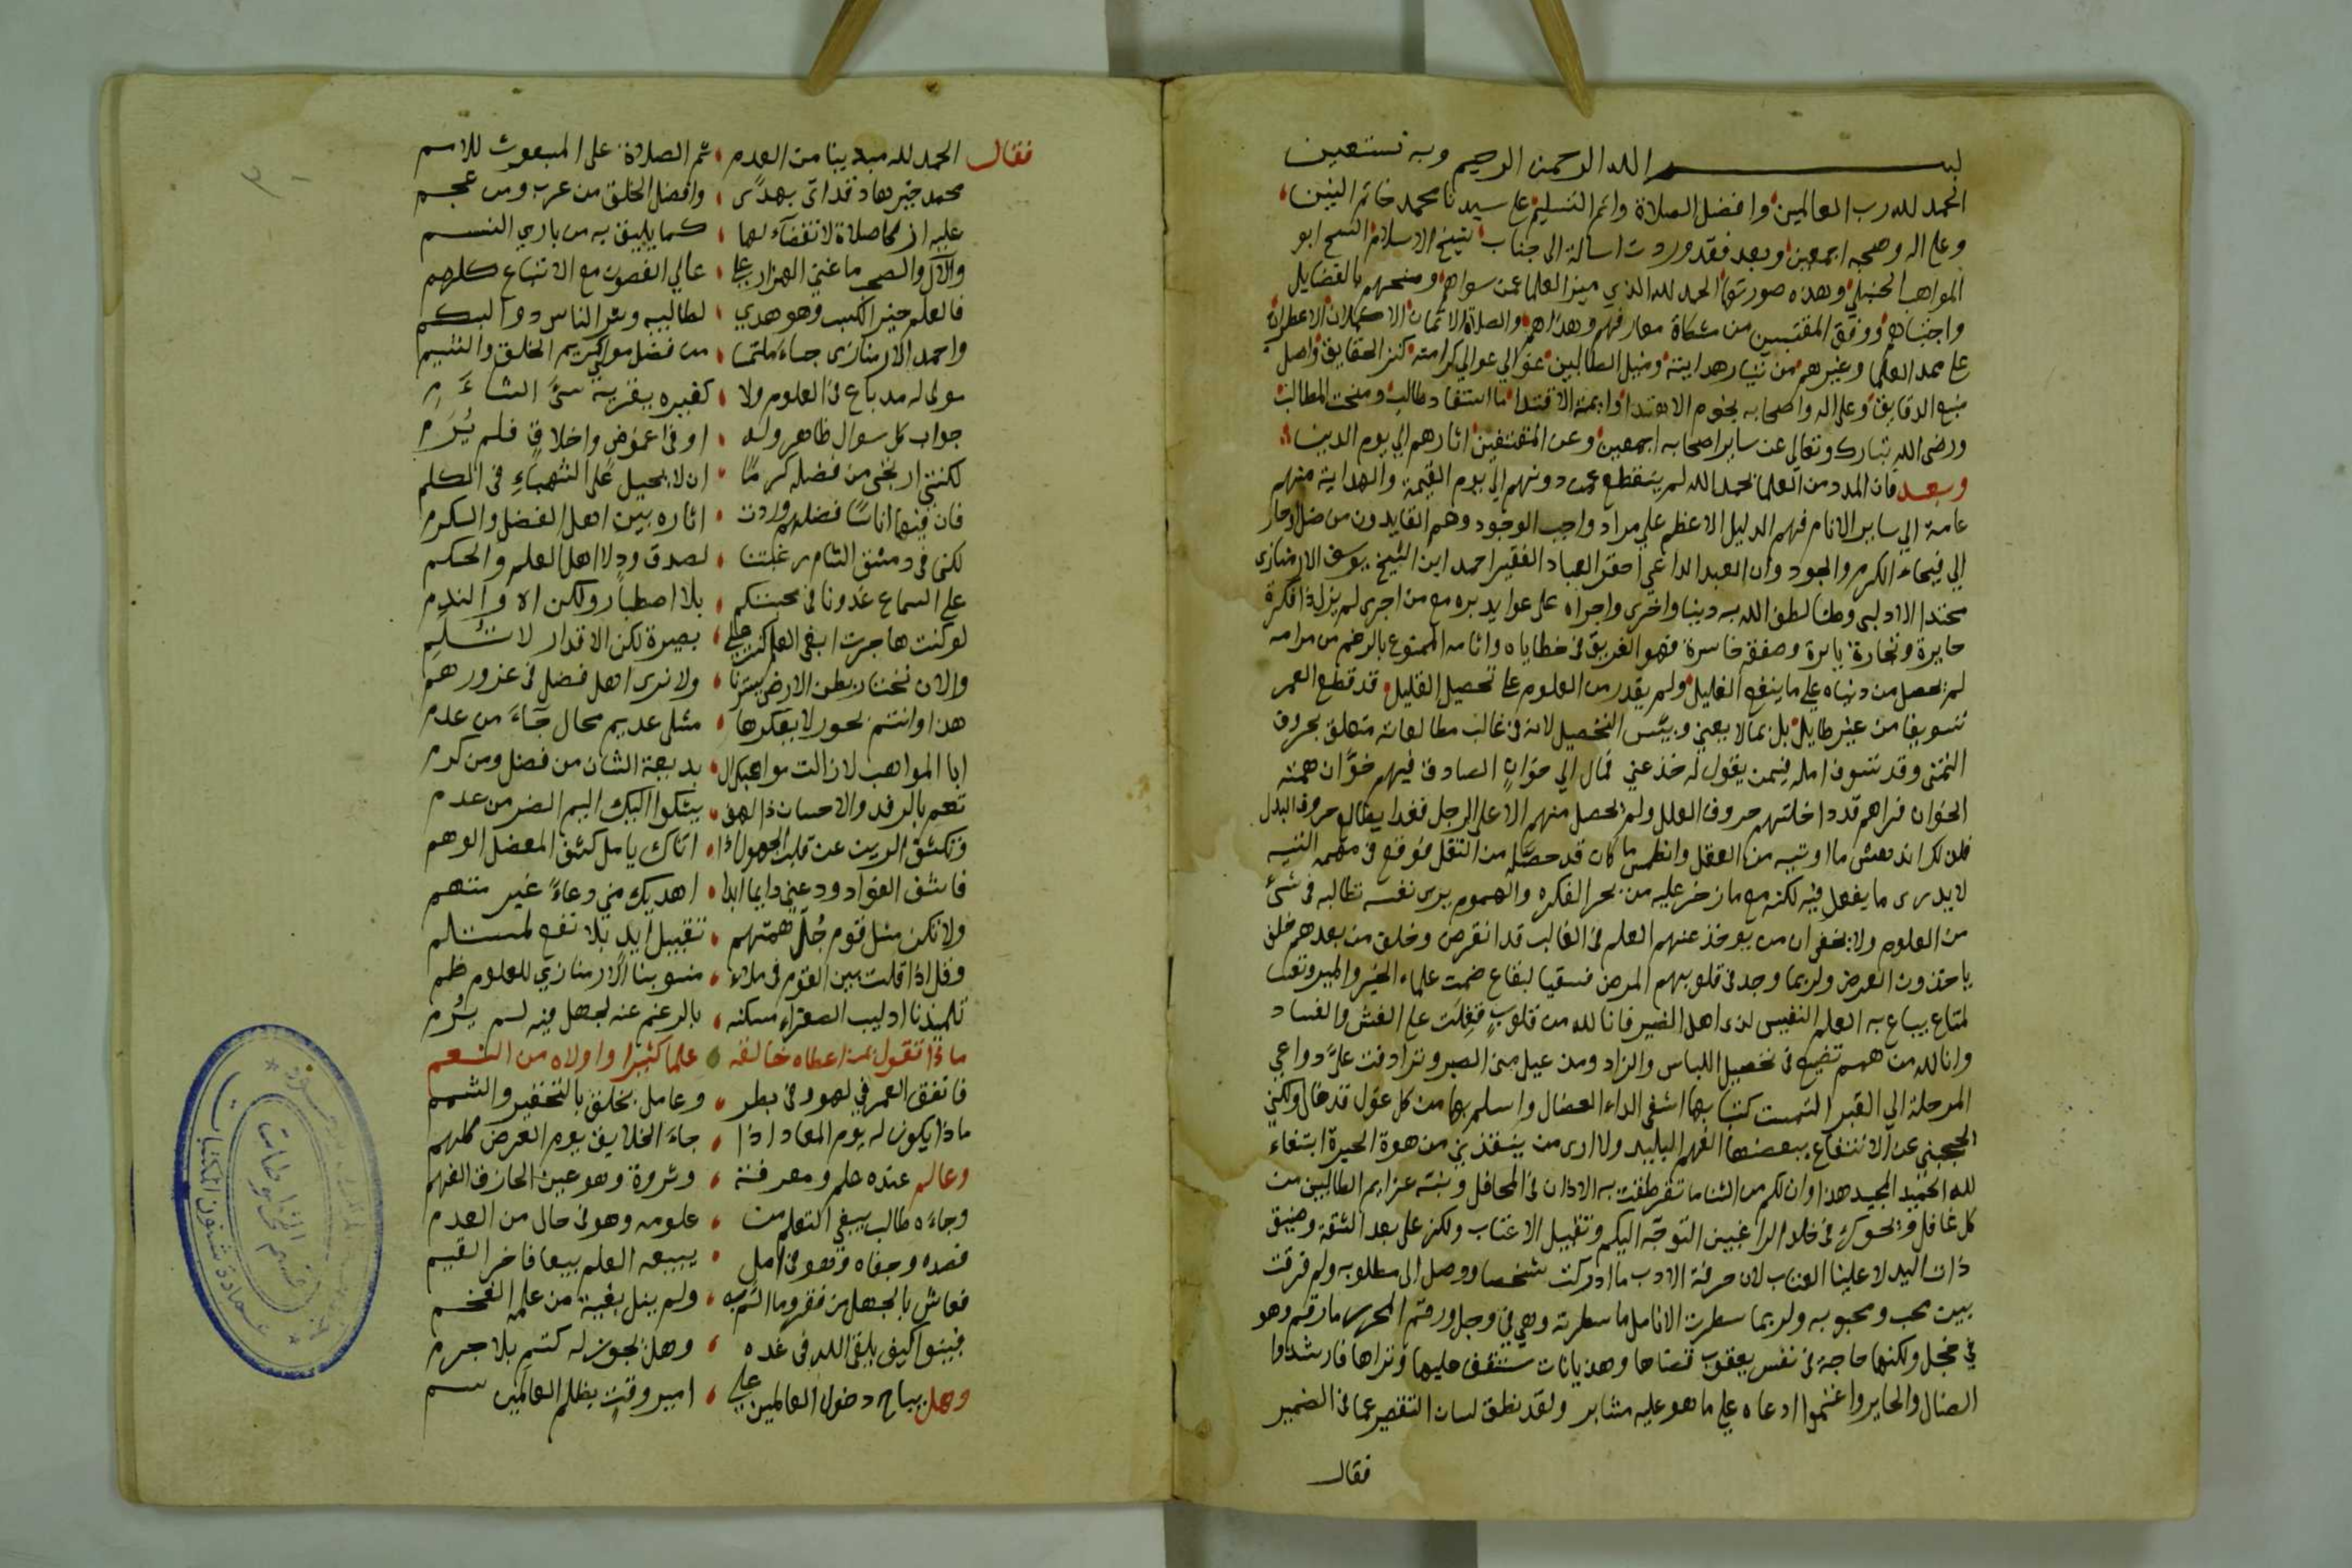 بسم الله الرحمن الرحيم وبه نستعين
الحمد لله رب العالمين وافضل الصلاة واتم التسليم على سيدنا محمد خاتم النبين
وعلى اله وصحبه اجمعين وبعد فقد وردت اسالة الى جناب شيخ الاسلام الشيخ ابو
المواهب الحنبلي وهذه صورتها الحمد لله الذي ميز العلما عمن سواهم ومنحهم بالفضايل
واجتباهم ووفق المقتبسين من مشكاة معارفهم وهداهم والصلاة الاتمان الاكملان الاعطران
على ممد العلما وغيرهم من تيار هدايته ومنيل الطالبين عوالي عوالي كرامته كنز الحقايق واصل
منبع الدقايق وعلى اله واصحابه نجوم الاهتدا وايمة الاقتدا ما استفاد طالب ومنحت المطالب
ورضى الله تبارك وتعالى عن ساير اصحابه اجمعين وعن المقتفين اثارهم الي يوم الدين
وبعد فان المدد من العلما بحمد الله لم ينقطع عمن دونهم الي يوم القيمة والهداية منهم
عامة الي ساير الانام فهم الدليل الاعظم علي مراد واجب الوجود وهم القايدون من ضل وحار
الي فيحاء الكرم والجود وان العبد الداعي احقر العباد الفقير احمد ابن الشيخ يوسف الارمنازي
محتدا الادلبي وطنا لطف الله به دينا واخرى واجراه على عوايد بره مع من اجرى لم يزل ذا فكرة
حايرة وتجارة بايرة وصفقة خاسرة فهو الغريق في خطاياه واثامه الممنوع بالرغم من مرامه
لم يحصل من دنياه على ما ينفع الغليل ولم يقدر من العلوم على تحصيل القليل قد قطع العمر
تسويفا من غير طايل بل بما لا يعني وبيس التحصيل لانه في غالب مطالعاته متعلق بحروف
التمني وقد تسوف امله فيمن يقول له خذ عني فمال الي خوان الصادق فيهم خوان همته
الخوان فراهم قد داخلتهم حروف العلل ولم يحصل منهم الا على الرجل فغدا يطالع حروف البدل
لا يدرى ما يفعل فيه لكنه مع ما زخر عليه من بحر الفكره والهموم يرى نفسه تطالبه في شئ
من العلوم ولا يخفى ان من يوخذ عنهم العلم في الغالب قد انقرض وخلف من بعدهم خلف
ياخذون العرض ولربما وجد في قلوبهم المرض فسقيا لبقاع ضمت علماء الخير والمير وتعسا
لمتاع يباع به العلم النفيس لدى اهل الضير فانا لله من قلوب قفلت على الغش والفساد
وانا لله من همم تضيع في تحصيل اللباس والزاد ومن عيل مني الصبر وترادفت علي دواعي
المرحلة الي القبر التمست كتبا بها اشفي الداء العضال واسلم بها من كل غول قد غال ولكني
لحجبني عن الانتفاع ببعضها الفهم البليد ولا ارى من ينقذني من هوة الحيرة ابتغاء
لله الحميد المجيد هذا وان لكم من الثنا ما تقرطقت به الاذان في المحافل ونبته عزايم الطالبين من
كل غافل وتحرك في خلد الراغبين التوجه اليكم وتقبيل الاعتاب ولكن على بعد الشقة وضيق
ذات اليد لا علينا العتاب لان حرفة الادب ما ادركت شخصا ووصل الى مطلوبه ولم فرقت
بين محب ومحبوبه ولربما سطرت الانامل ما سطرته وهي في وجل ورقم المحرر ما رقم وهو
في خجل ولكنها حاجة في نفس يعقوب قضاها وهذيانات ستقف عليها وتراها فارشدوا
الضال والحاير واغنموا دعاه على ما هو عليه مثابر ولقد نطق لسان التقصير عما في الضمير
فقال
فقال الحمد لله مبدينا من العدم ثم الصلاة على المبعوث للامم
محمد خير هاد قد اتى بهدى وافضل الخلق من عرب ومن عجم
عليه ازكا صلاة لا نفضاء لها كما يليق به من باري النسم
والآل والصحب ما غنى الهزار على عالي الغصون مع الاتباع كلهم
فالعلم خير الكسب وهو هدي لطالبيه وشر الناس ذو البكم
واحمد الارمنازى جاء ملتمسا من فضل مولى كريم الخلق والشيم
مولى له مد باع في العلوم ولا كغيره يفتريه سئ الشام
جواب كل سوال ظاهر وله او في اعموض واخلاق فلم يرم
لكنني ارتجى من فضله كرما ان لا يحيل على الشهباء في الكلم
فان فيها اناسا فضلهم وردت اثاره بين اهل الفضل والكرم
لكن في دمشق الشام رغبتنا لصدق ودلا اهل العلم والحكم
على السماع غدونا في محبتكم بلا اصطبار ولكن اه واالندم
لو كنت هاجرت ابغي العلم كنت على بصيرة لكن الاقدار لا تلم
والان نختار بطن الارض يسترنا ولا نرى اهل فضل في عزورهم
هذا وانتم بحور لا يعكرها مثلى عديم محال جاء من عدم
ابا المواهب لا زالت مواهبك ال بديعة الشان من فضل ومن كرم
تعم بالرفد والاحسان ذا لهف يشكوا اليك اليم الضر من عدم
وتكشف الرين عن قلب الجهول اذا اتاك يا مل كشف المعضل الوهم
فاشف الفواد ودعني دايما ابدا اهديك مني دعاء غير متهم
ولا تكن مثل قوم جل همتهم تقبيل ايد بلا نفع لمستلم
وقل اذا قلت بين القوم في ملاء منسوبنا الارمنازي للعلوم ظم
تلميذنا ادليب الصغراء مسكنه بالرغم عنه لجهل فيه لم يرم
ماذا تقول بمن اعطاه خالقه علما كثيرا واولاه من النعم
فانفق العمر في لهو وفي بطر وعامل الخلق بالتحقير والشمم
ماذا يكون له يوم المعاد اذا جاء الخلايق يوم العرض كلهم
وعالم عنده حلم ومعرفة وثروة وهو عين الحاذق الفهم
وجاءه طالب يبغي التعلم من علومه وهو في حال من العدم
فصده وجفاه وهو في امل يبيعه العلم بيعا فاخر القيم
فعاش بالجهل من فقر وما التزمه ولم ينل بغية من علمه الفخم
فبينوا كيف يلقى الله في غده وهل يجوز له كتم بلا جرم
وهل يباح دخول العالمين على امير وقت بظلم العالمين سم